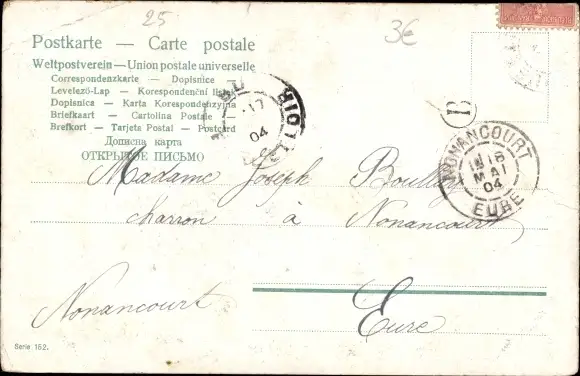 25
3€
Postkarte — Carte postale
Weltpostverein — Union postale universelle
Correspondenzkarte — Dopisnice —
Levelező-Lap — Korespondenční lístek
Dopisnica — Karta Korespondenzyjna
Briefkaart — Cartolina Postale —
Brefkort — Tarjeta Postal — Postcard
Дописна карта
ОТКРЫТОЕ ПИСЬМО
17
04
NONANCOURT
18
MAI
04
EURE
Madame Joseph
charron à Nonancourt
Nonancourt Eure
Serie 152.